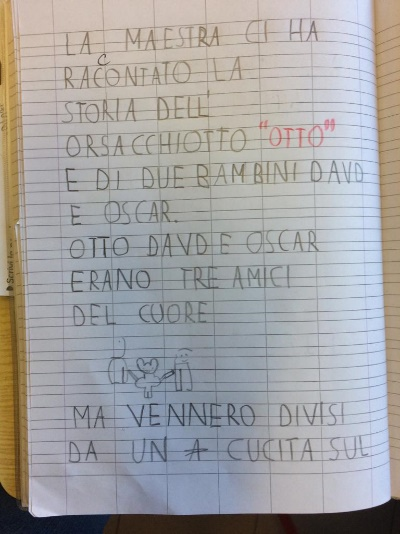 LA MAESTRA CI HA
RACCONTATO LA
STORIA DELL'
ORSACCHIOTTO "OTTO"
E DI DUE BAMBINI DAVD
E OSCAR.
OTTO DAVD E OSCAR
ERANO TRE AMICI
DEL CUORE
MA VENNERO DIVISI
DA UN A CUCITA SUL